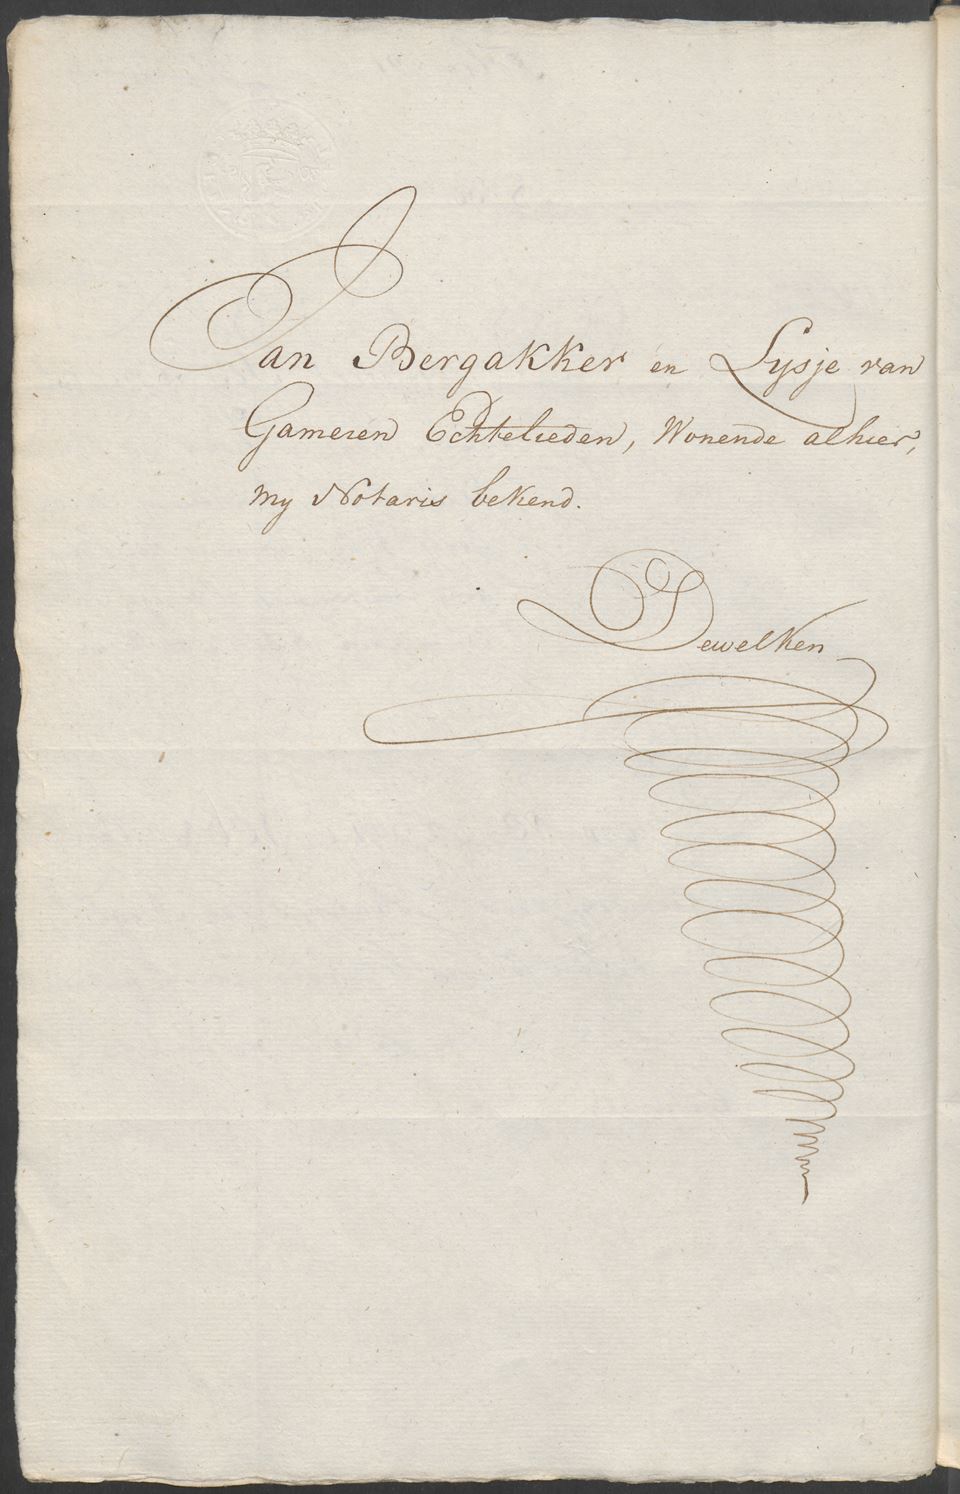 Jan Bergakker en Lysje van
Gameren Echtelieden, Wonende alhier,
my Notaris bekend.
Dewelken